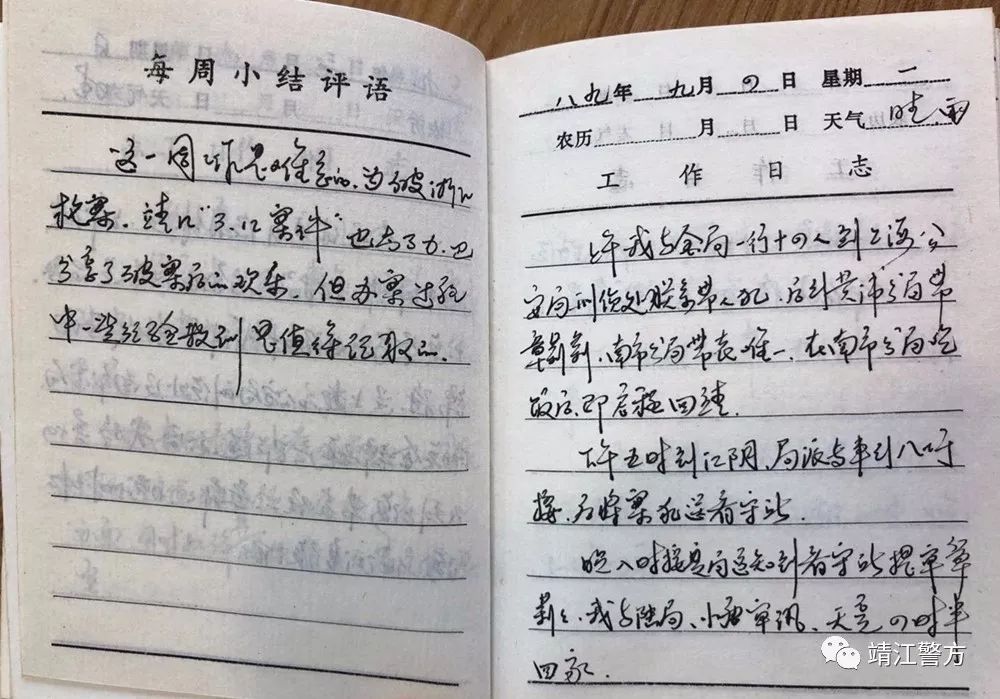 每周小结评语
这一周工作是难忘的,为了破浙江
枪案、靖江"3.12案件"也出了力,也
分享了破案后的欢乐,但办案过程
中一些经验教训是值得记取的。
八九年 九月 四日 星期 一
农历 月 日 天气 晴、雨
工作日志
上午我与金局一行十四人到上海公
安局刑侦处联系带人犯,后到黄浦分局带
,南市分局带袁唯一,在南市分局吃
饭后,即启程回靖。
下午五时到江阴,局派专车到八圩
接,后将案犯送看守所。
晚八时接吴局通知到看守所提审
我与陆局、审讯,天亮4时半
回家。
靖江警方